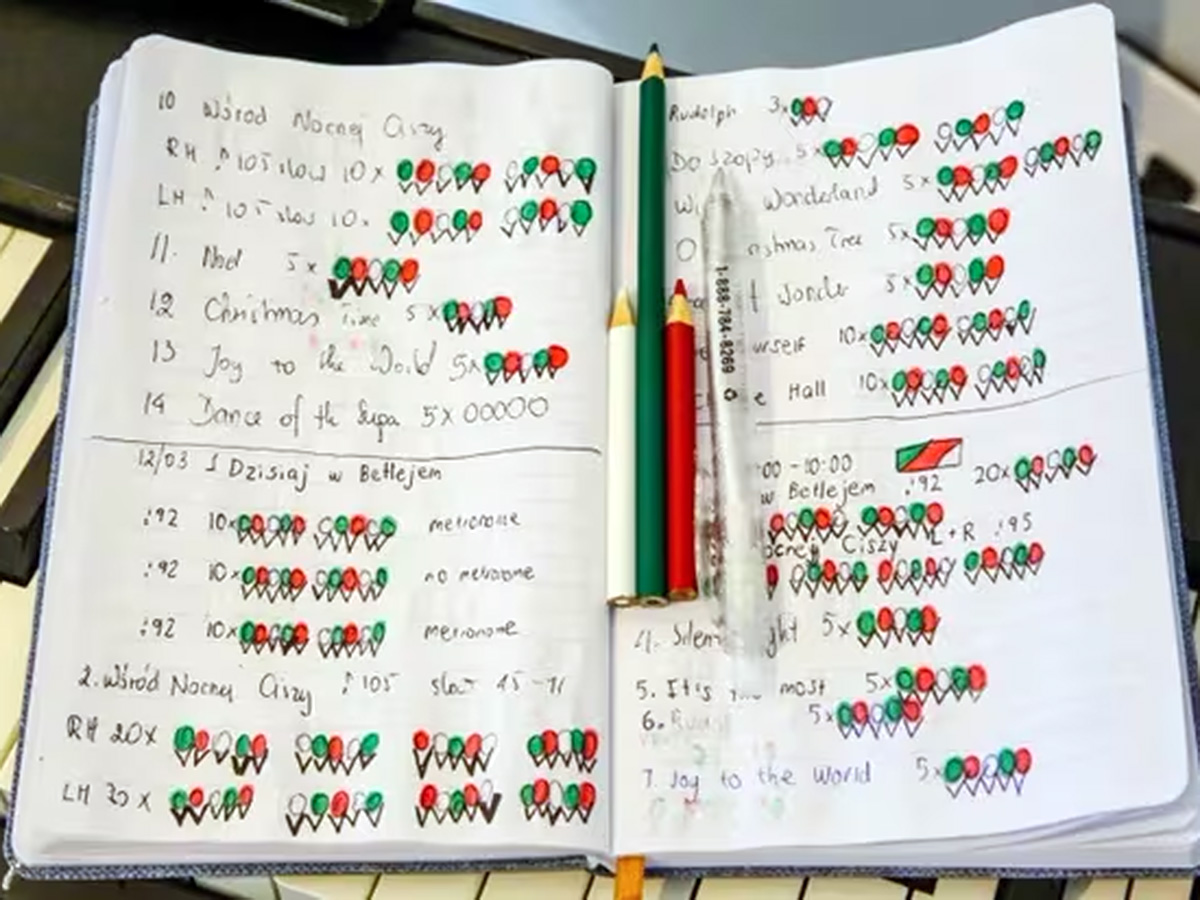 10 Wśród Nocnej Ciszy
RH ♪105 slow 10x
LH ♪105 slow 10x
11. Noel 5x
12 Christmas Time 5x
13 Joy to the World 5x
14 Dance of the Suga 5x OOOOO
12/03 1 Dzisiaj w Betlejem
:92 10x metronome
:92 10x no metronome
:92 10x metronome
2. Wśród Nocnej Ciszy ♪105 slow
RH 20x
LH x
Rudolph 3x
Do szopy 5x
Wonderland 5x
Tree 5x
Wonder 5x
10x
Hall 10x
00 - 10:00
w Betlejem :92 20x
Ciszy L+R :95
4. 5x
5. It's most 5x
6. 5x
7. Joy to the World 5x
1-888-784-8269